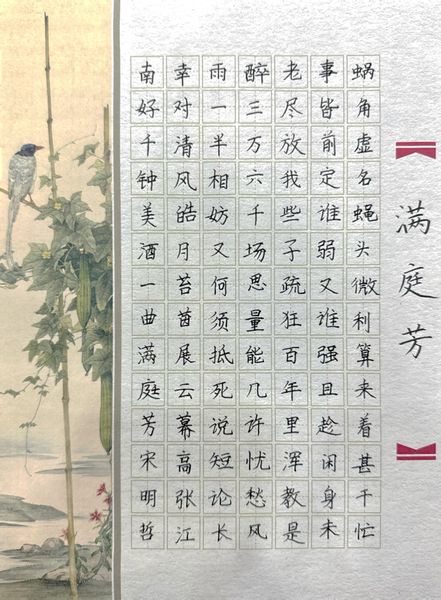 满庭芳
蜗角虚名蝇头微利算来着甚干忙
事皆前定谁弱又谁强且趁闲身未
老尽放我些子疏狂百年里浑教是
醉三万六千场思量能几许忧愁风
雨一半相妨又何须抵死说短论长
幸对清风皓月苔茵展云幕高张江
南好千钟美酒一曲满庭芳宋明哲